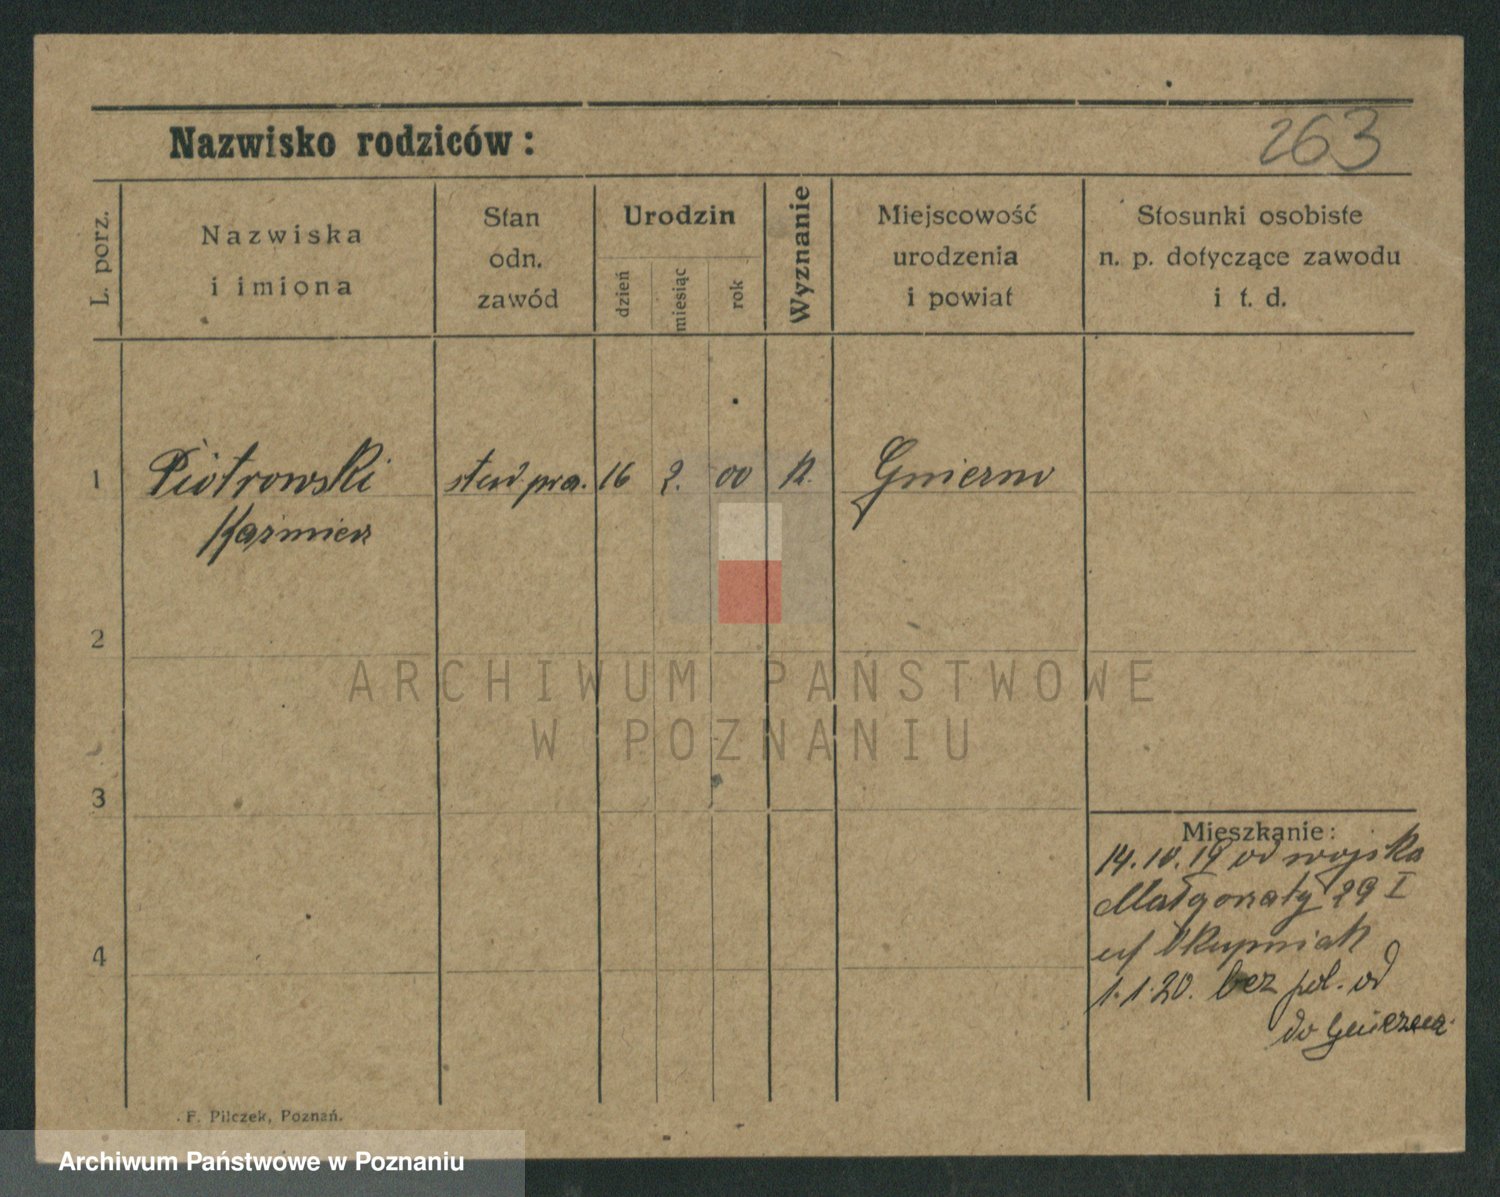 Nazwisko rodziców:
263
L. porz.
Nazwiska
i imiona
Stan
odn.
zawód
Urodzin
dzień
miesiąc
rok
Wyznanie
Miejscowość
urodzenia
i powiat
Stosunki osobiste
n. p. dotyczące zawodu
i t. d.
1 Piotrowski stud. pra. 16 2. 00 k. Gniezno
Kazimierz
2
ARCHIWUM PAŃSTWOWE
W POZNANIU
3
Mieszkanie:
14.10.19 od wojska
Małgorzaty 29 I
1.1.20. bez pol. od
do
4
F. Pilczek, Poznań.
Archiwum Państwowe w Poznaniu